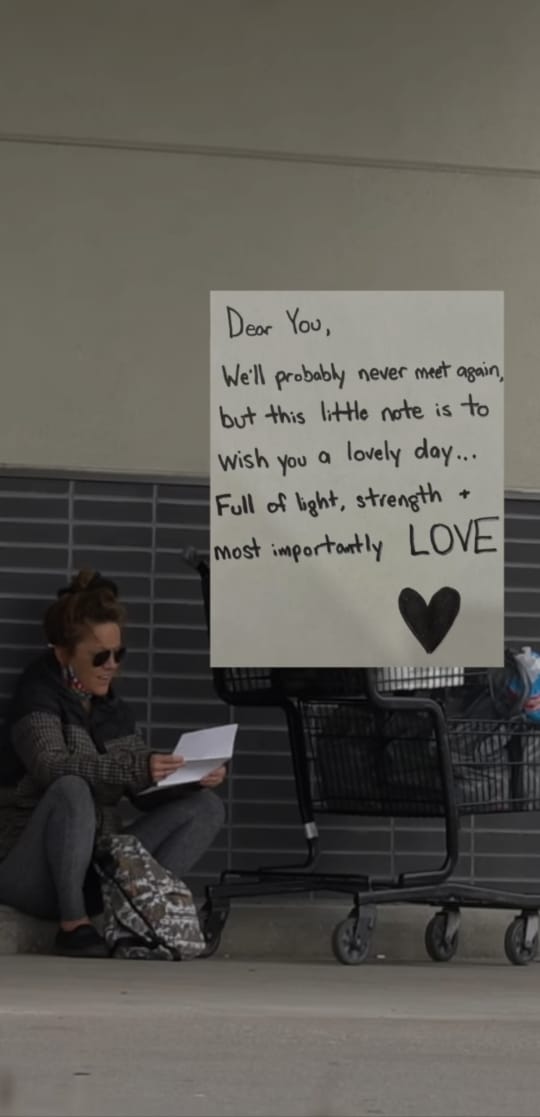 Dear You,
We'll probably never meet again,
but this little note is to
wish you a lovely day...
Full of light, strength +
most importantly LOVE